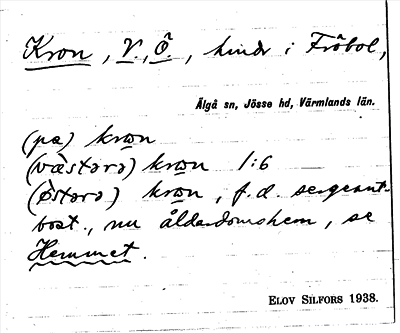 Kron, V., Ö., hmdr i Fröbol,
Älgå sn, Jösse hd, Värmlands län.
(pa) kron
(västərə) kron 1:6
(östərə) kron, f.d. sergeant-
bost., nu ålderdomshem, se
Hemmet.
ELOV SILFORS 1938.